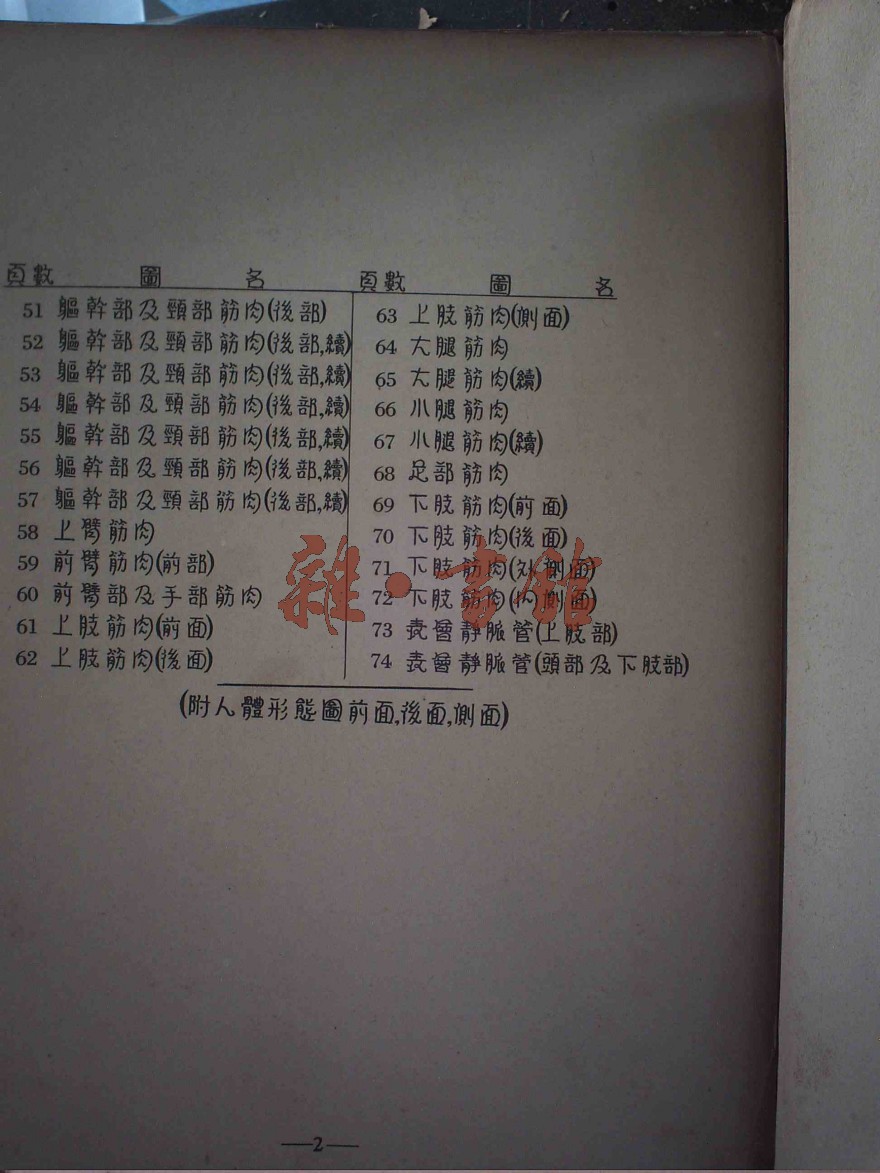 頁數 圖 名
51 軀幹部及頸部筋肉(後部)
52 軀幹部及頸部筋肉(後部,續)
53 軀幹部及頸部筋肉(後部,續)
54 軀幹部及頸部筋肉(後部,續)
55 軀幹部及頸部筋肉(後部,續)
56 軀幹部及頸部筋肉(後部,續)
57 軀幹部及頸部筋肉(後部,續)
58 上臂筋肉
59 前臂筋肉(前部)
60 前臂部及手部筋肉
61 上肢筋肉(前面)
62 上肢筋肉(後面)
頁數 圖 名
63 上肢筋肉(側面)
64 大腿筋肉
65 大腿筋肉(續)
66 小腿筋肉
67 小腿筋肉(續)
68 足部筋肉
69 下肢筋肉(前面)
70 下肢筋肉(後面)
71 下肢筋肉(外側面)
72 下肢筋肉(內側面)
73 表層靜脈管(上肢部)
74 表層靜脈管(頭部及下肢部)
(附人體形態圖前面,後面,側面)
雜·書館
—2—